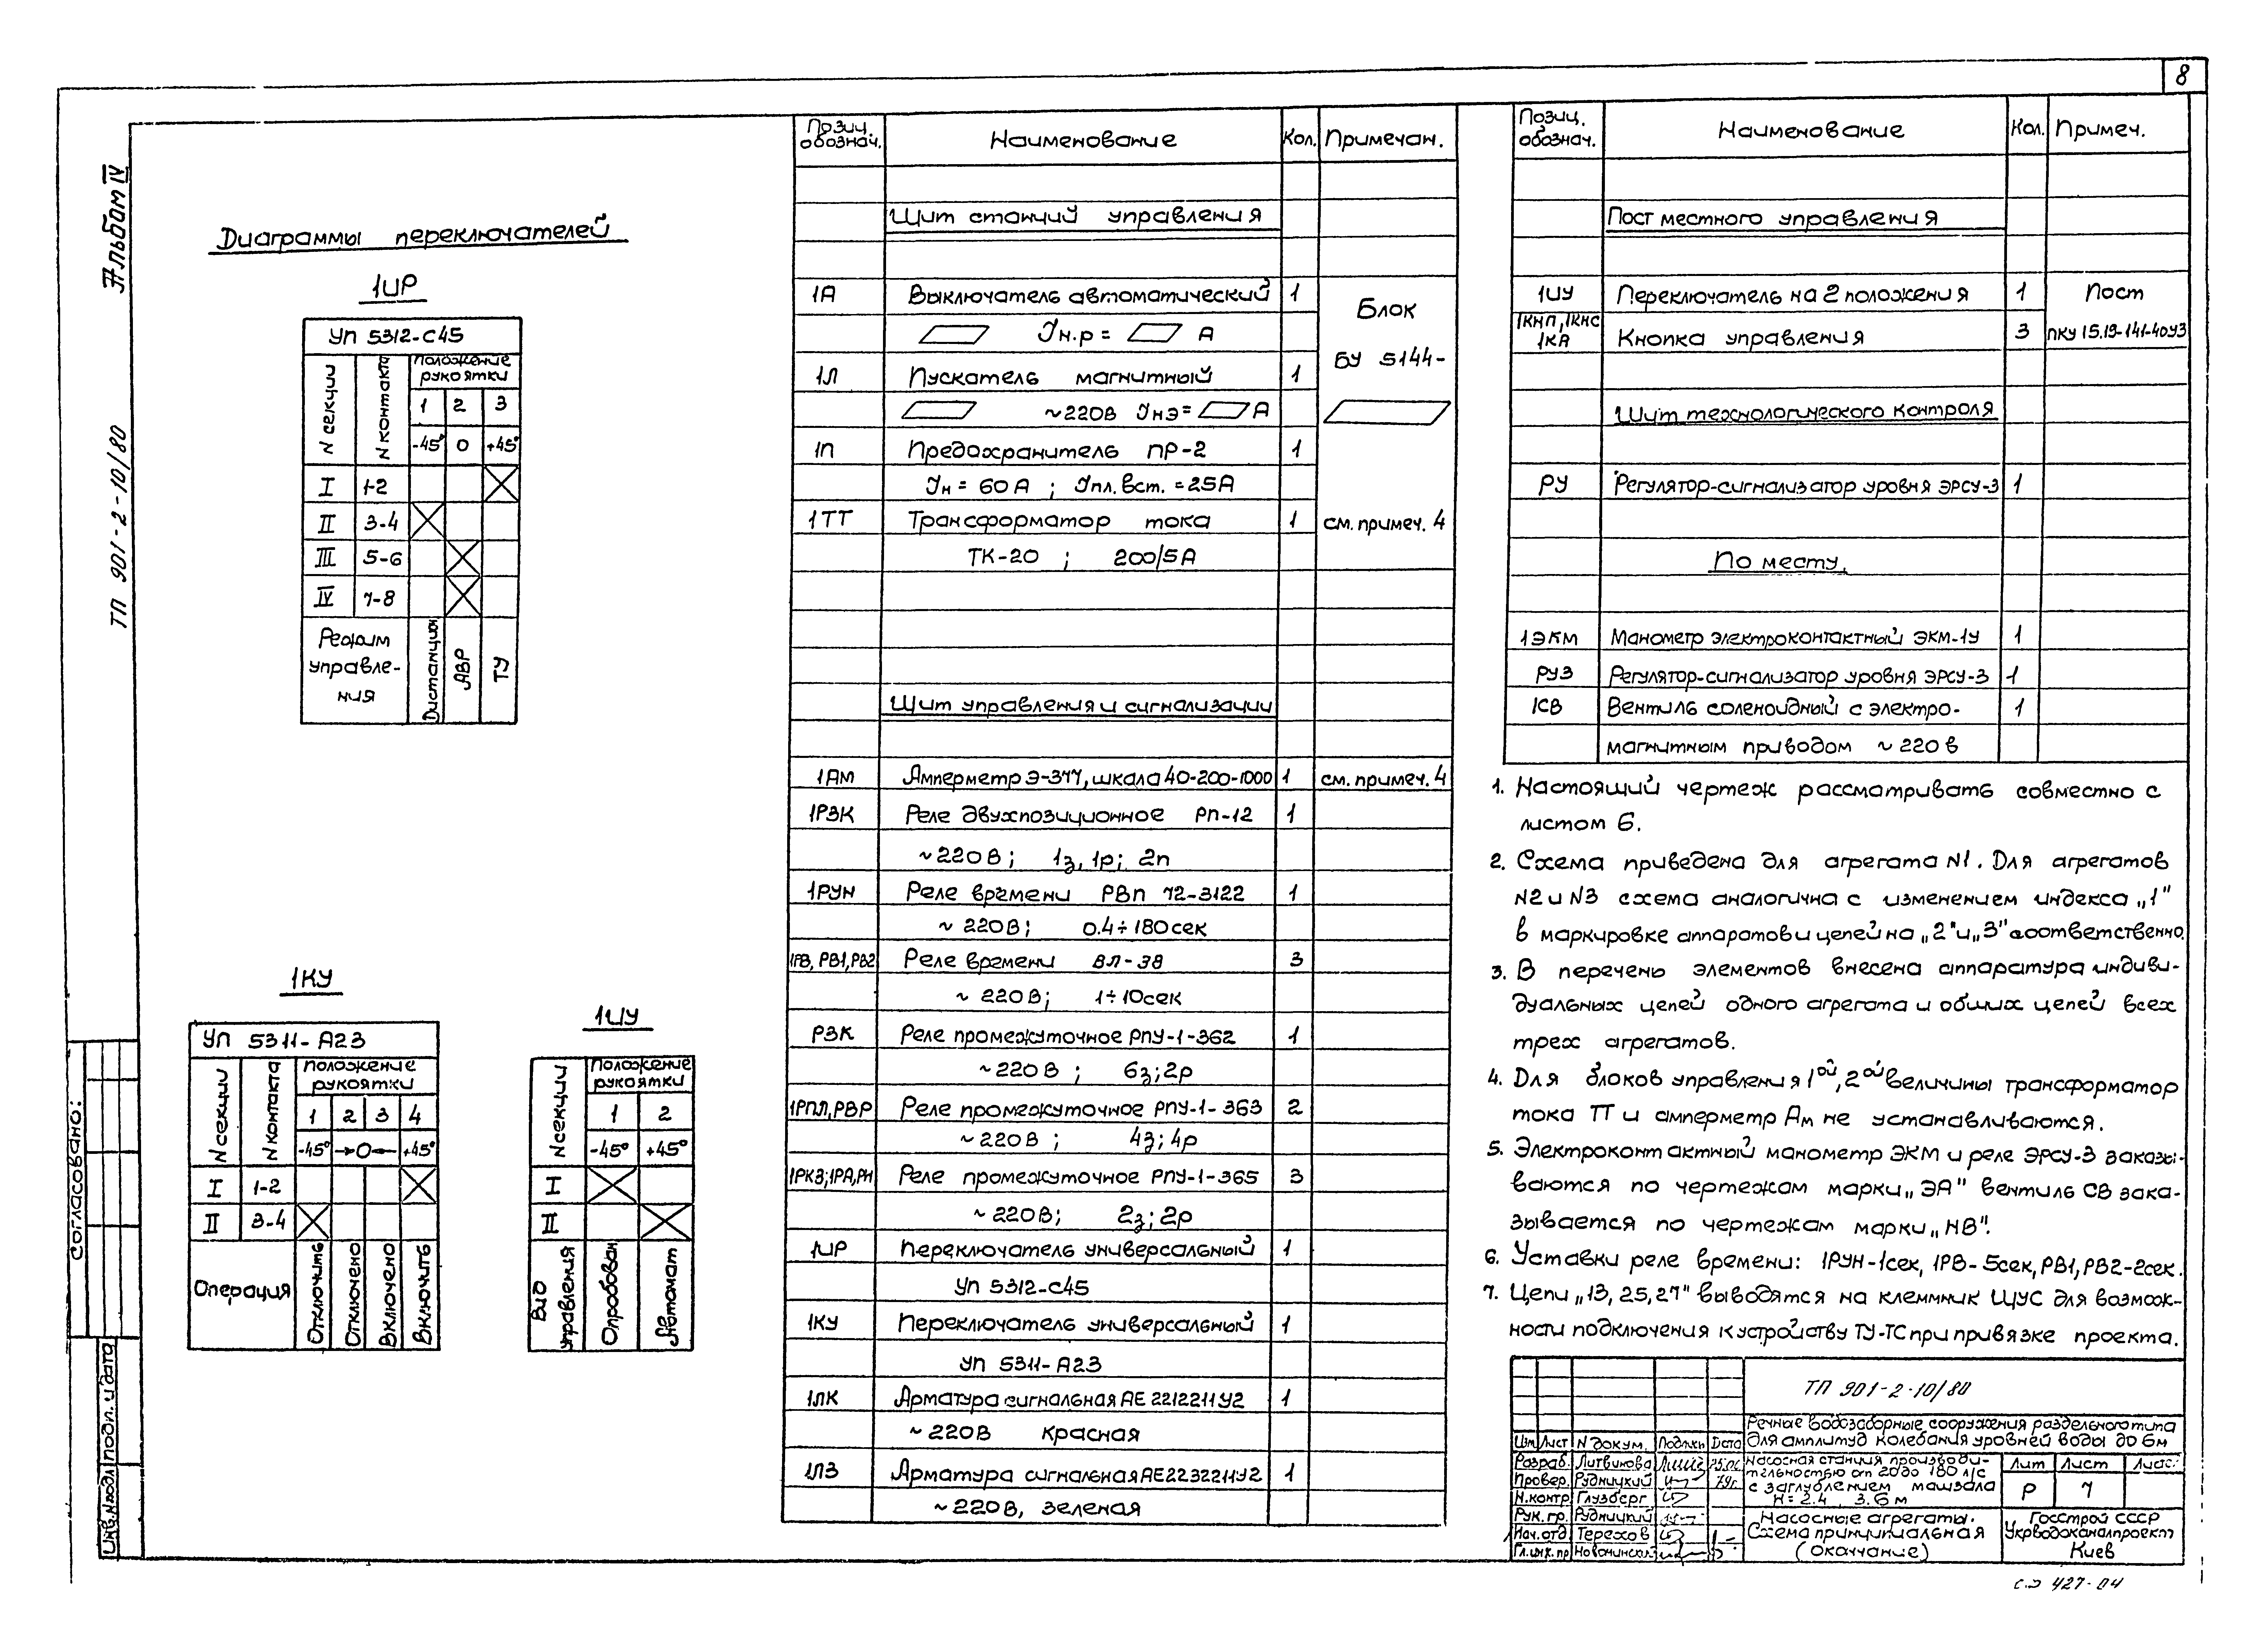 8
Альбом IV
ТП 901-2-10/80
Согласовано:
Инв.Nподл
Подп. и дата
Диаграммы переключателей
1ИР
УП 5312-С45
N секции
N контакта
Положение
рукоятки
1 2 3
-45° 0 +45°
I 1-2
II 3-4
III 5-6
IV 7-8
Режим
управле-
ния
Дистанцион
АВР
ТУ
1КУ
УП 5311-А23
N секции
N контакта
Положение
рукоятки
1 2 3 4
-45° →0← +45°
I 1-2
II 3-4
Операция
Отключить
Отключено
Включено
Включить
1ИУ
N секции
Положение
рукоятки
1 2
-45° +45°
I
II
Вид
управления
Опробован
Автомат
Позиц.
обознач.
Наименование
Кол.
Примечан.
Щит станций управления
1А Выключатель автоматический 1
Блок
Jн.р = А
БУ 5144-
1Л Пускатель магнитный 1
~220В Jнэ= А
1П Предохранитель ПР-2 1
Jн = 60А ; Jпл.вст. = 25А
1ТТ Трансформатор тока 1 см. примеч. 4
ТК-20 ; 200/5А
Щит управления и сигнализации
1АМ Амперметр Э-377, шкала 40-200-1000 1 см. примеч. 4
1РЗК Реле двухпозиционное РП-12 1
~220В; 1з, 1р; 2п
1РУН Реле времени РВП 72-3122 1
~ 220В; 0.4÷180сек
1РВ, РВ1, РВ2 Реле времени ВЛ-38 3
~ 220В; 1÷10сек
РЗК Реле промежуточное РПУ-1-362 1
~220В ; 6з; 2р
1РПЛ, РВР Реле промежуточное РПУ-1-363 2
~220В ; 4з; 4р
1РКЗ; 1РА, РН Реле промежуточное РПУ-1-365 3
~220В; 2з; 2р
1ИР Переключатель универсальный 1
УП 5312-С45
1КУ Переключатель универсальный 1
УП 5311-А23
1ЛК Арматура сигнальная АЕ 2212211У2 1
~220В Красная
1ЛЗ Арматура сигнальная АЕ2232211У2 1
~220В, зеленая
Позиц.
обознач.
Наименование
Кол.
Примеч.
Пост местного управления
1ИУ Переключатель на 2 положения 1 Пост
1КНП, 1КНС
1КА Кнопка управления 3 ПКУ 15.19-141-40У3
Щит технологического контроля
РУ Регулятор-сигнализатор уровня ЭРСУ-3 1
По месту.
1ЭКМ Манометр электроконтактный ЭКМ-1У 1
РУЗ Регулятор-сигнализатор уровня ЭРСУ-3 1
1СВ Вентиль соленоидный с электро- 1
магнитным приводом ~ 220в
1. Настоящий чертеж рассматривать совместно с
листом 6.
2. Схема приведена для агрегата N1. Для агрегатов
N2 и N3 схема аналогична с изменением индекса „1"
в маркировке аппаратов и цепей на „2" и „3" соответственно.
3. В перечень элементов внесена аппаратура индиви-
дуальных цепей одного агрегата и общих цепей всех
трех агрегатов.
4. Для блоков управления 1ой, 2ой величины трансформатор
тока ТТ и амперметр Ам не устанавливаются.
5. Электроконтактный манометр ЭКМ и реле ЭРСУ-3 заказы-
ваются по чертежам марки „ЭА" вентиль СВ зака-
зывается по чертежам марки „НВ".
6. Уставки реле времени: 1РУН-1сек, 1РВ-5сек, РВ1, РВ2-2сек.
7. Цепи „13, 25, 27" выводятся на клеммник ЩУС для возмож-
ности подключения к устройству ТУ-ТС при привязке проекта.
ТП 901-2-10/80
Речные водозаборные сооружения раздельного типа
для амплитуд колебания уровней воды до 6м
Изм Лист N докум. Подпись Дата
Разраб. Литвинова
Провер. Рудницкий 79г.
Н.контр Глузберг
Рук. гр. Рудницкий
Нач.отд Терехов
Гл.инж.пр
Насосная станция производи-
тельностью от 20 до 180 л/с
с заглублением машзала
H = 2.4 , 3.6 м
Лит Лист
Р 7
Насосные агрегаты.
Схема принципиальная
(окончание)
Госстрой СССР
Укрводоканалпроект
Киев
427-04